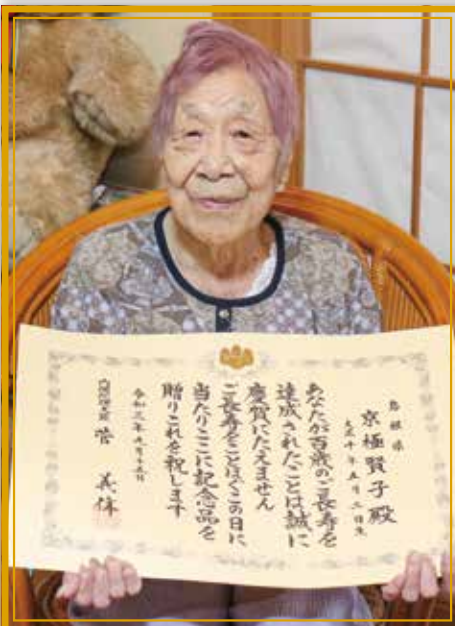 島根県
京極賢子殿
大正十年五月二日生
あなたが百歳のご長寿を
達成されたことは誠に
慶賀にたえません
ご長寿をことほぐこの日に
当たりここに記念品を
贈りこれを祝します
令和三年九月十五日
内閣総理大臣 菅 義偉